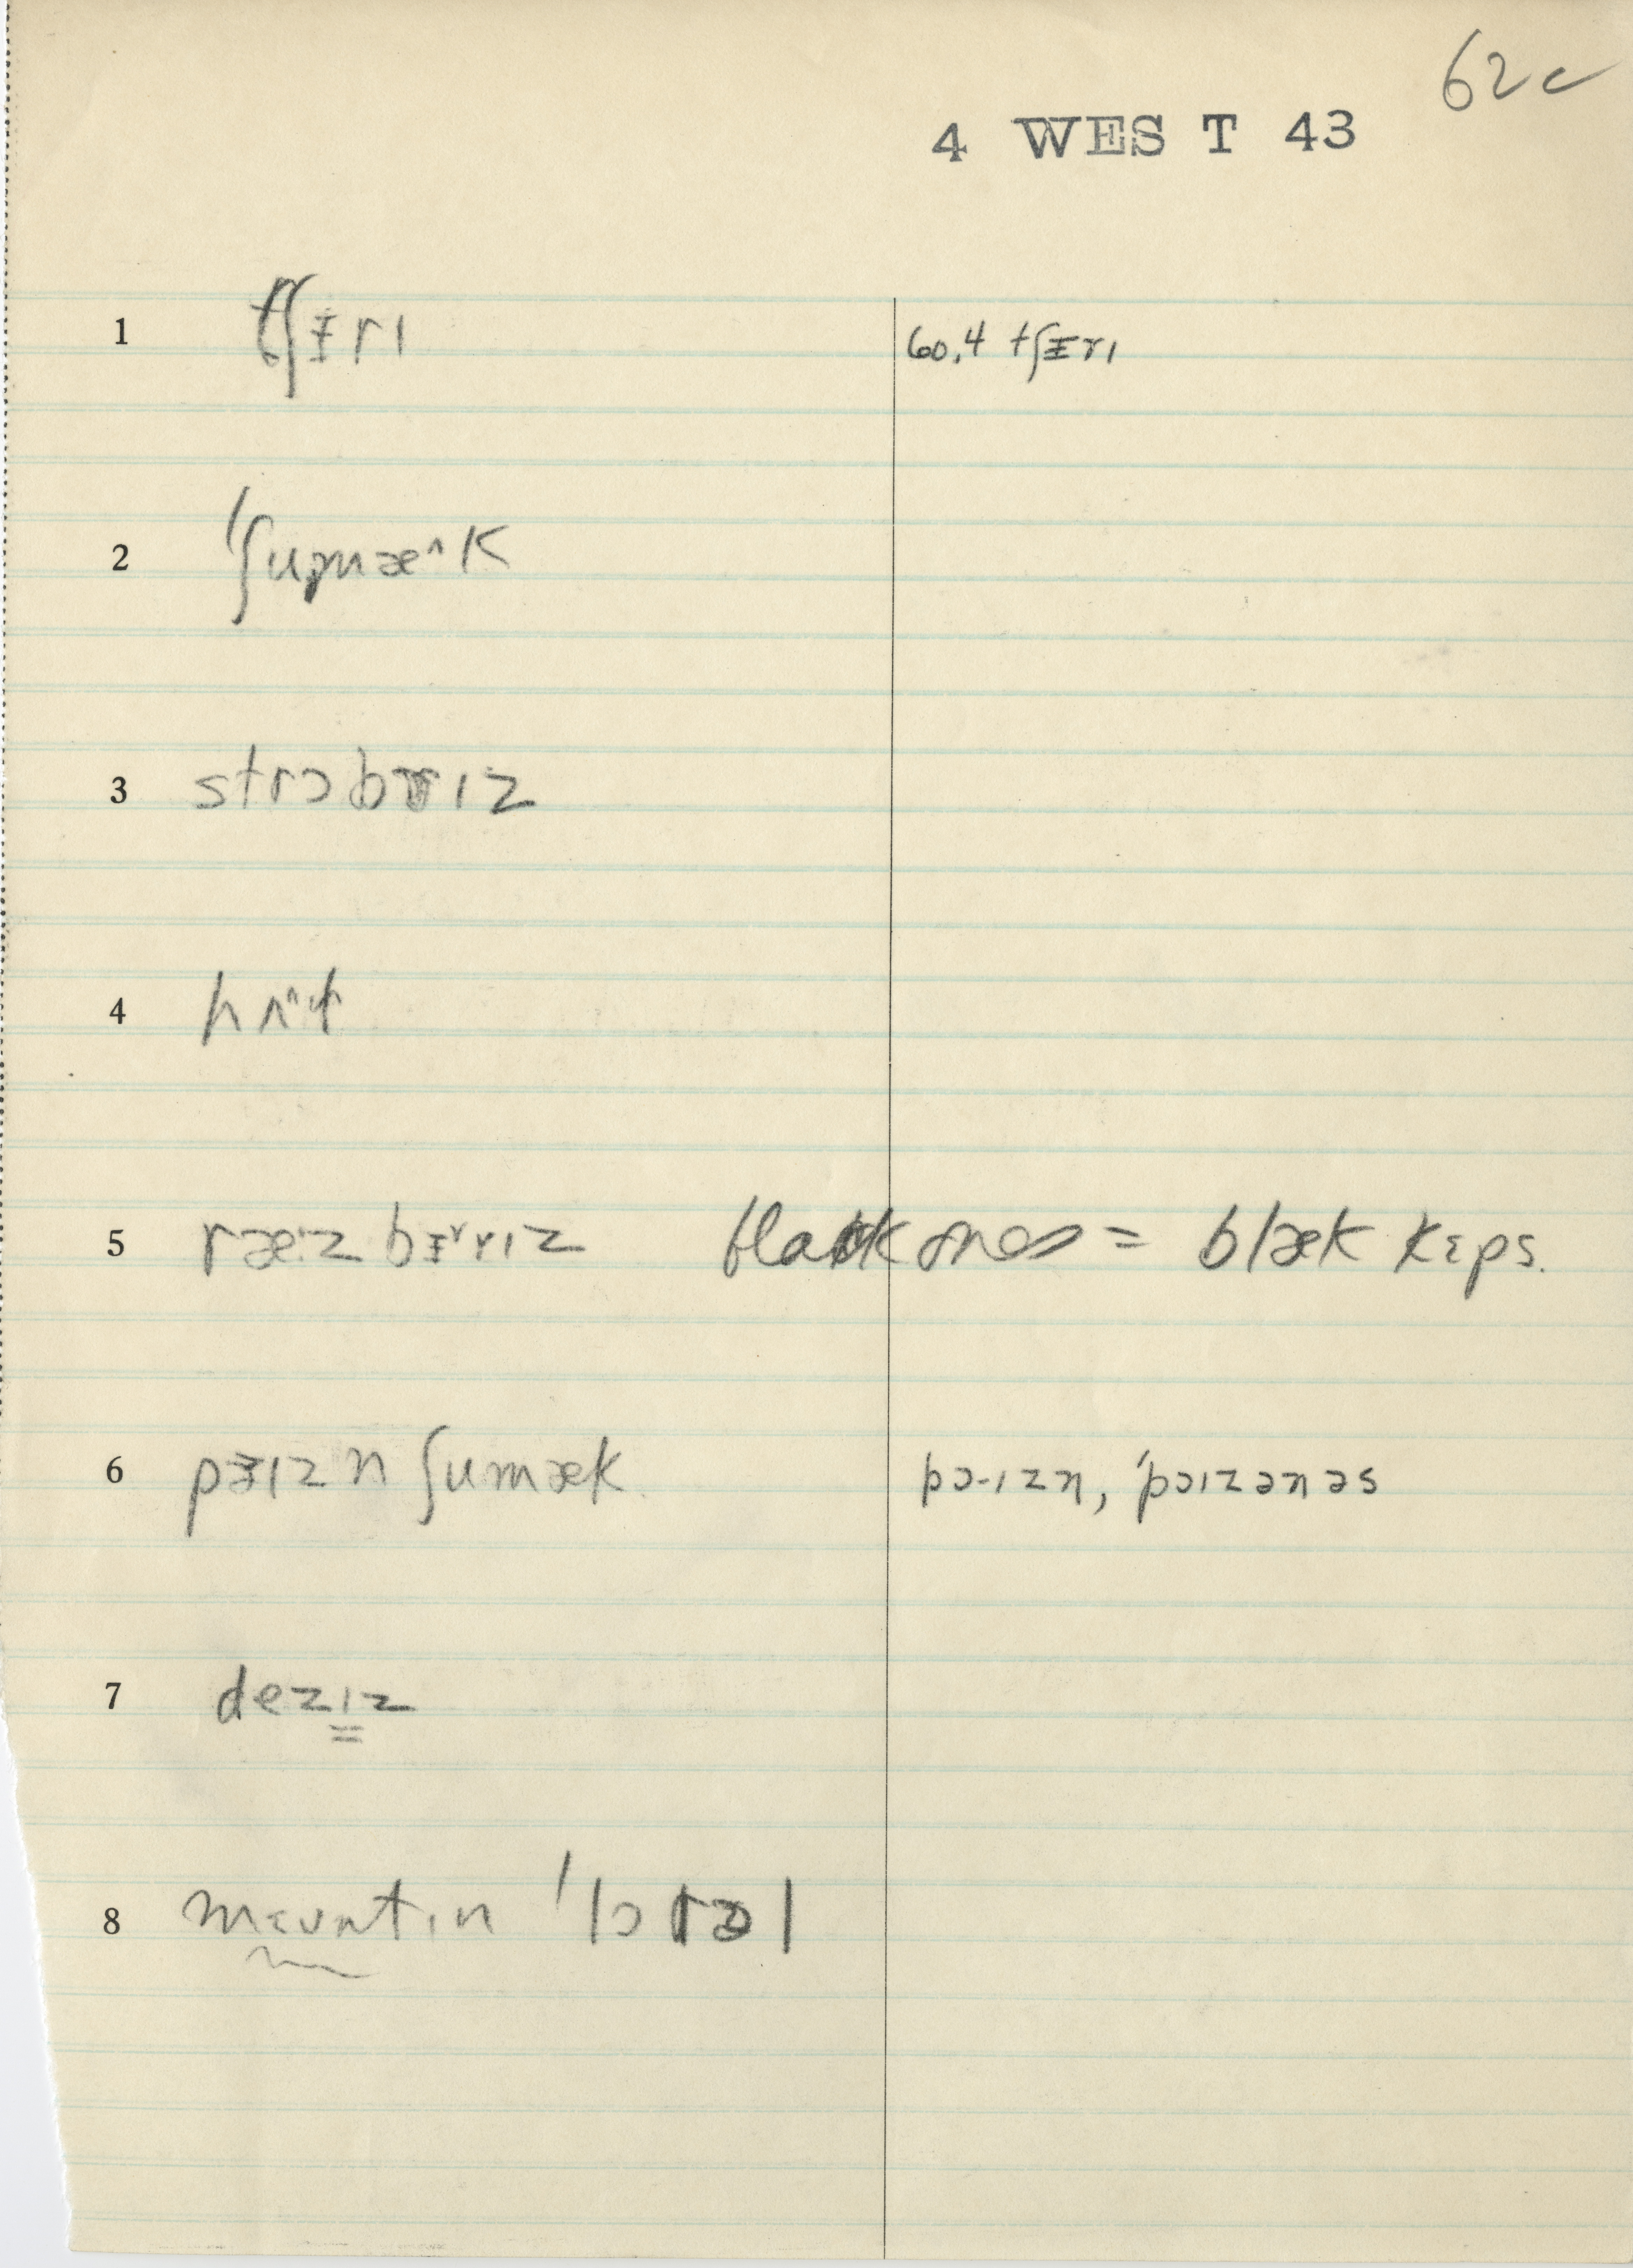 62c
4 WEST 43
1 tʃɪ̵rɪ 60.4 tʃɪ̵rɪ
2 ˈʃumæ^k
3 strɔbrɪz
4
5 ræ·z bɪ̵rrɪz black ones = blæk kɛps.
6 pɜɪzn ʃumæk. pɔ·ɪzn, ˈpɔɪzənəs
7 dezɪz
8 mɛʊntɪn ˈlɔrəl